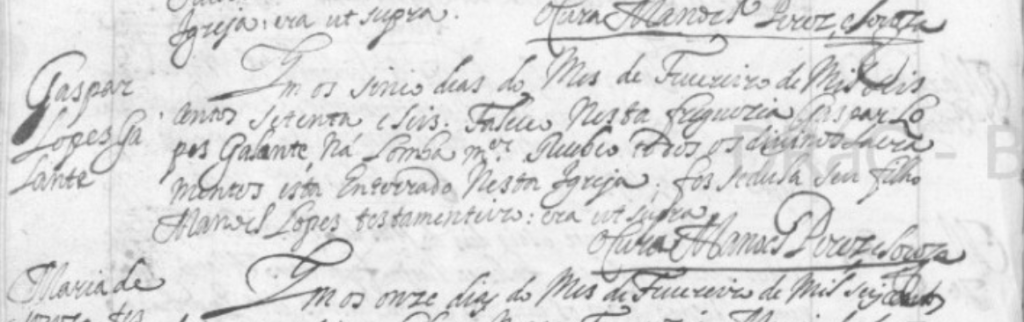 Igreja: era ut supra. O Cura Manoel Perez e Souza
Gaspar
Lopes Ga
lante
Em os sinco dias do Mes de Fevereiro de Mil e seis
centos setenta e seis. Faleceo Nesta freguezia Gaspar Lo
pes Galante, Ná Lomba m.or Recebeo todos os divinos sacra
mentos está Enterrado Nesta Igreja, seu filho
Manoel Lopes testamenteiro: era ut supra
O Cura Manoel Perez e Souza
Maria de
Em os onze dias do Mes de Fevereiro de Mil seis
DRAC - B